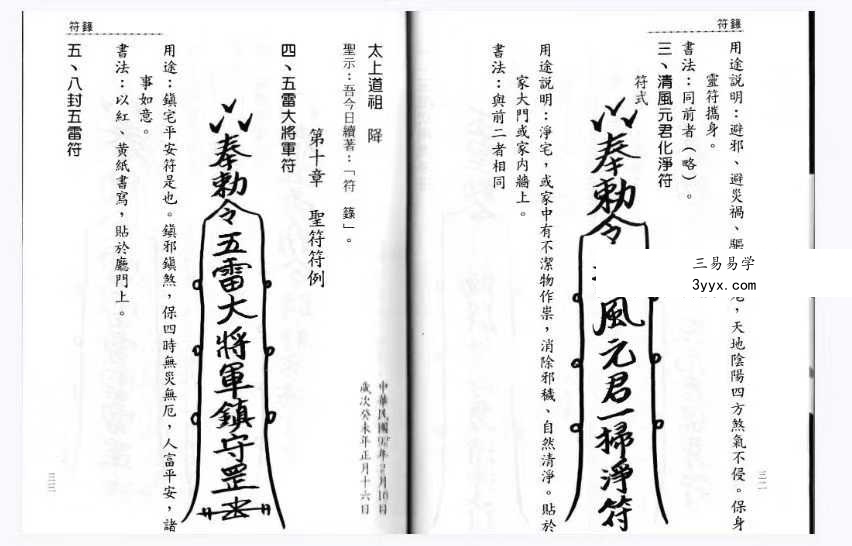 符籙
用途説明：避邪、避災禍、驅
，天地陰陽四方煞氣不侵。保身
靈符攜身。
書法：同前者（略）。
三、清風元君化淨符
符式
奉勅令
風元君一掃淨符
三易易学
3yyx.com
用途説明：淨宅，或家中有不潔物作祟，消除邪穢、自然清淨。貼於
家大門或家內牆上。
書法：與前二者相同
三二
符籙
太上道祖 降
聖示：吾今日續著：「符 籙」。
中華民國92年2月16日
歲次癸未年正月十六日
第十章 聖符符例
四、五雷大將軍符
奉勅令五雷大將軍鎮守罡
用途：鎮宅平安符是也。鎮邪鎮煞，保四時無災無厄，人富平安，諸
事如意。
書法：以紅、黃紙書寫，貼於廳門上。
五、八封五雷符
三三